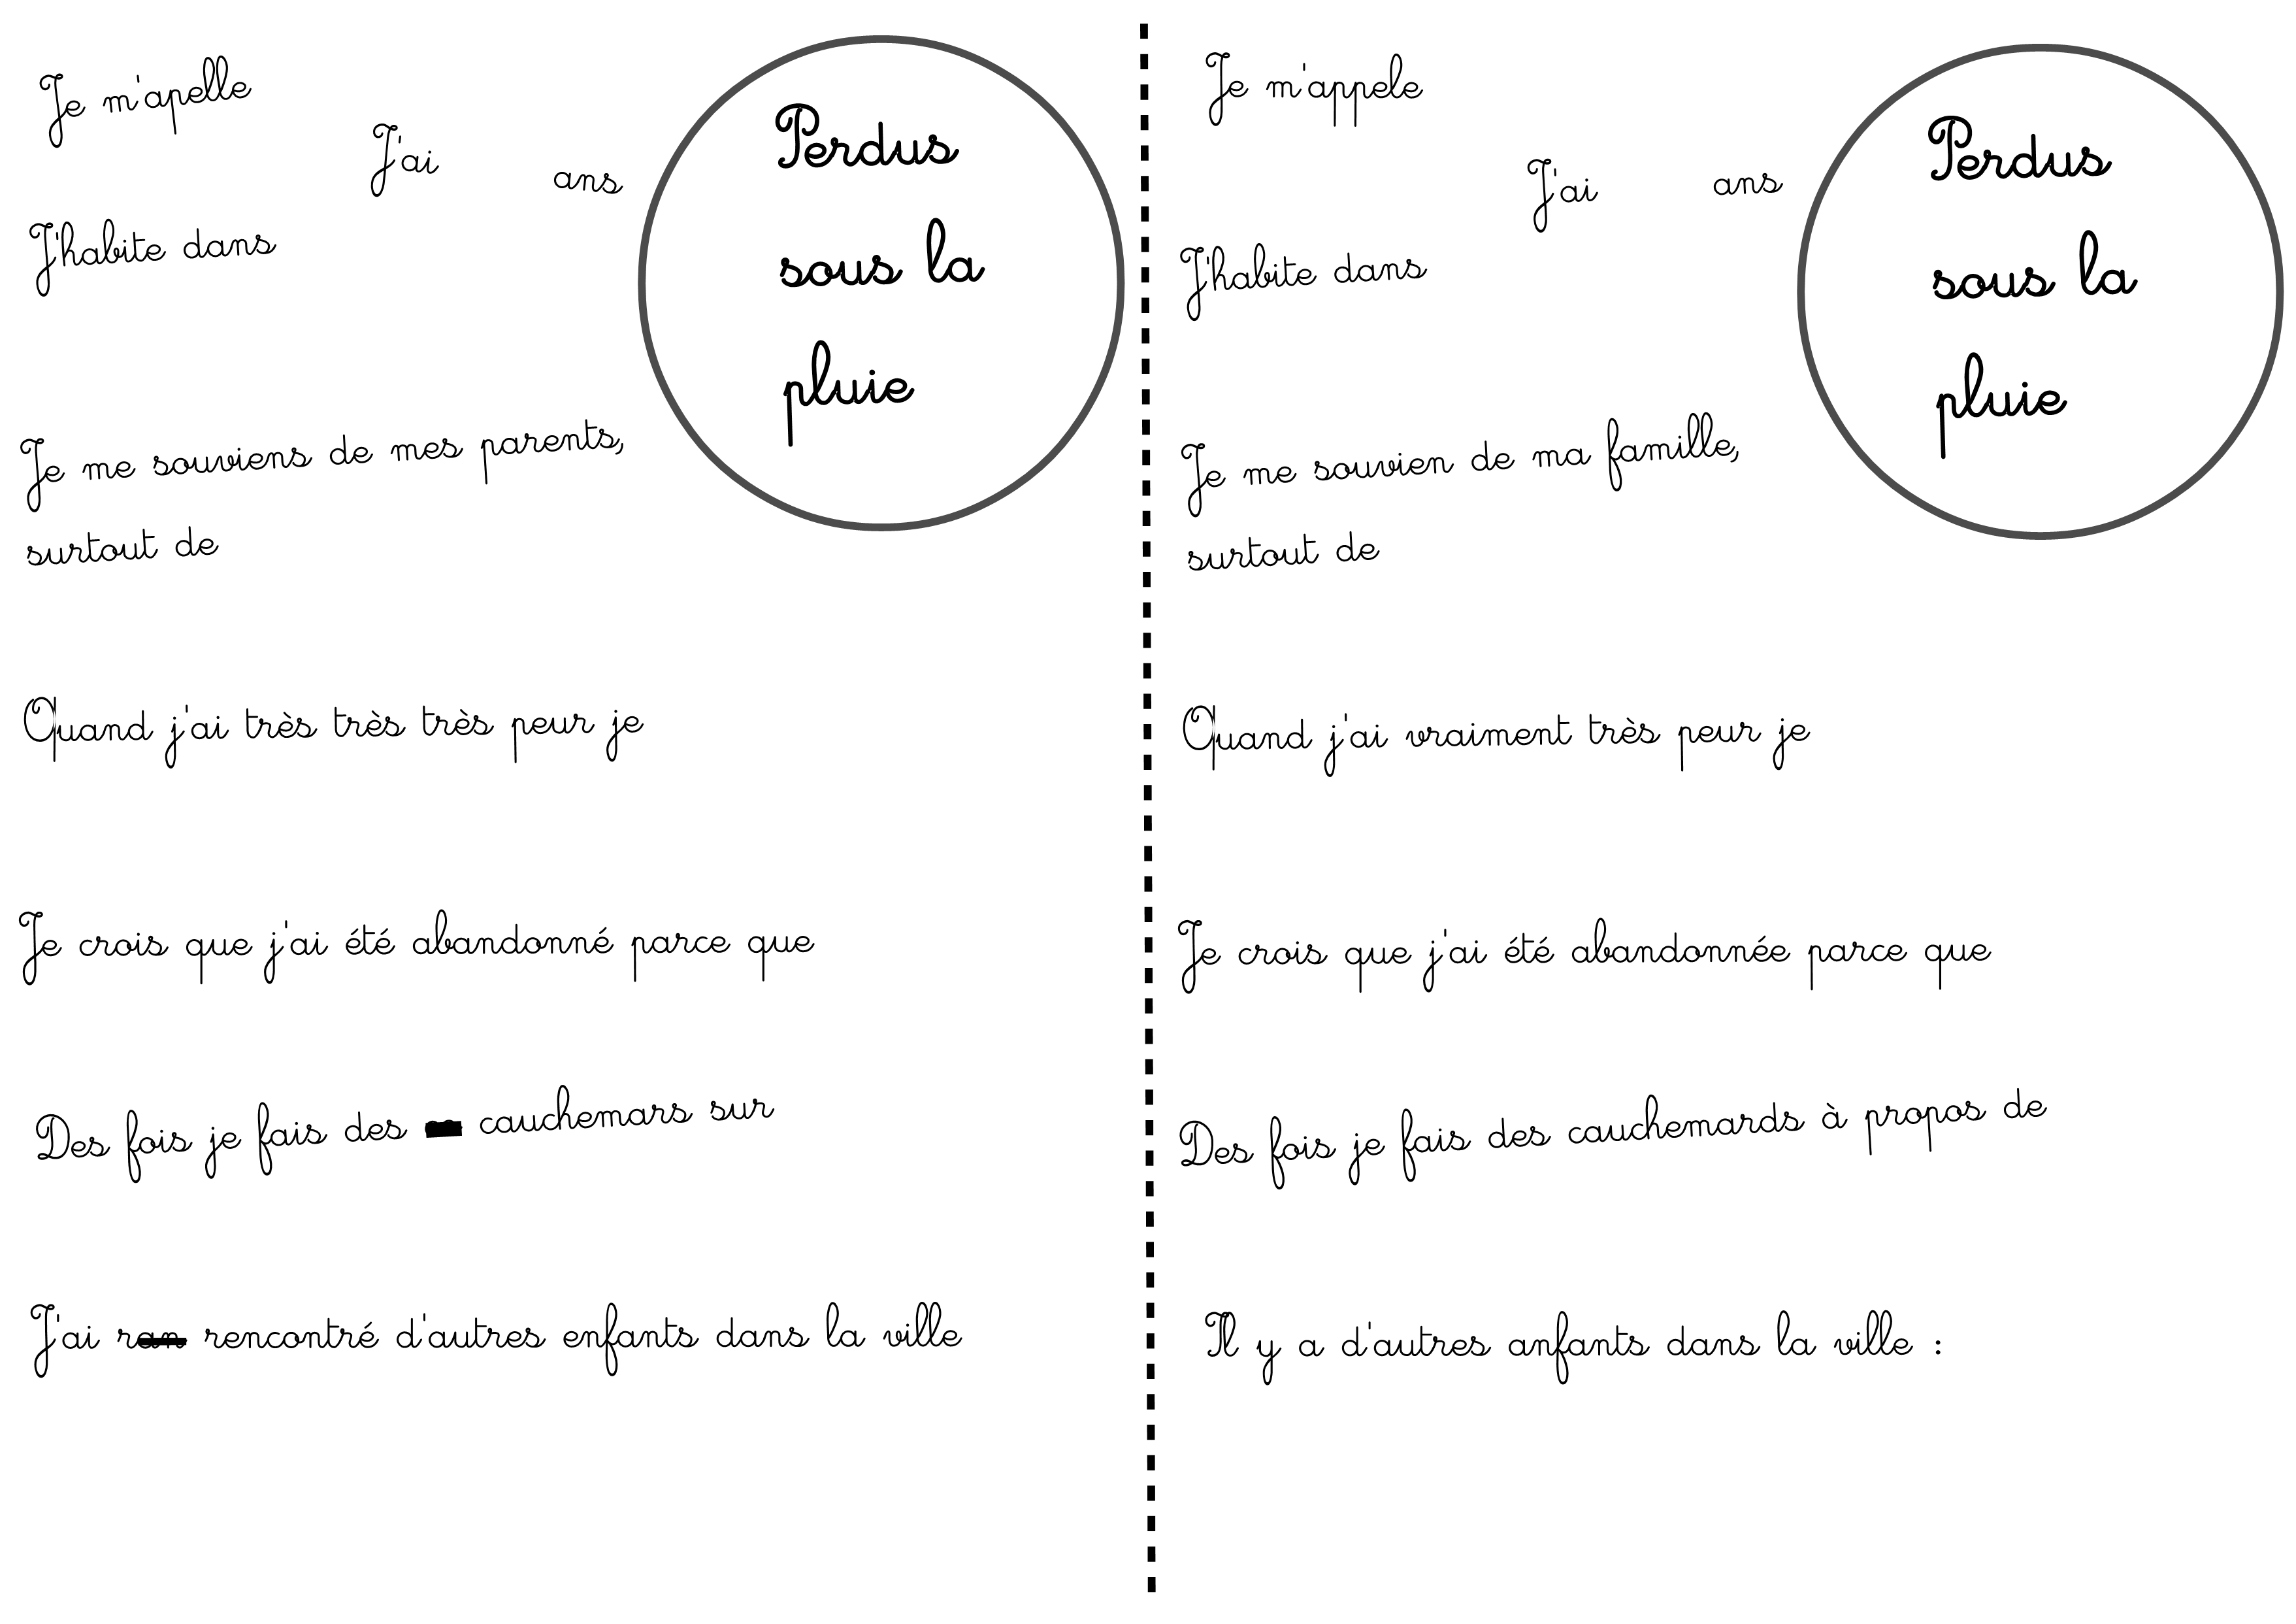 Je m'apelle
J'ai ans
J'habite dans
Perdus
sous la
pluie
Je me souviens de mes parents,
surtout de
Quand j'ai très très très peur je
Je crois que j'ai été abandonné parce que
Des fois je fais des cauchemars sur
J'ai ran rencontré d'autres enfants dans la ville
Je m'appele
J'ai ans
J'habite dans
Perdus
sous la
pluie
Je me souvien de ma famille,
surtout de
Quand j'ai vraiment très peur je
Je crois que j'ai été abandonnée parce que
Des fois je fais des cauchemards à propos de
Il y a d'autres anfants dans la ville :